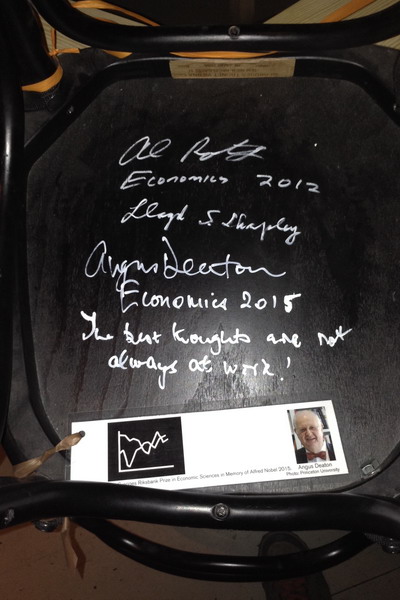 Al Roth
Economics 2012
Lloyd S. Shapley
Angus Deaton
Economics 2015
The best thoughts are not
always at work!
Riksbank Prize in Economic Sciences in Memory of Alfred Nobel 2015.
Angus Deaton
Photo: Princeton University